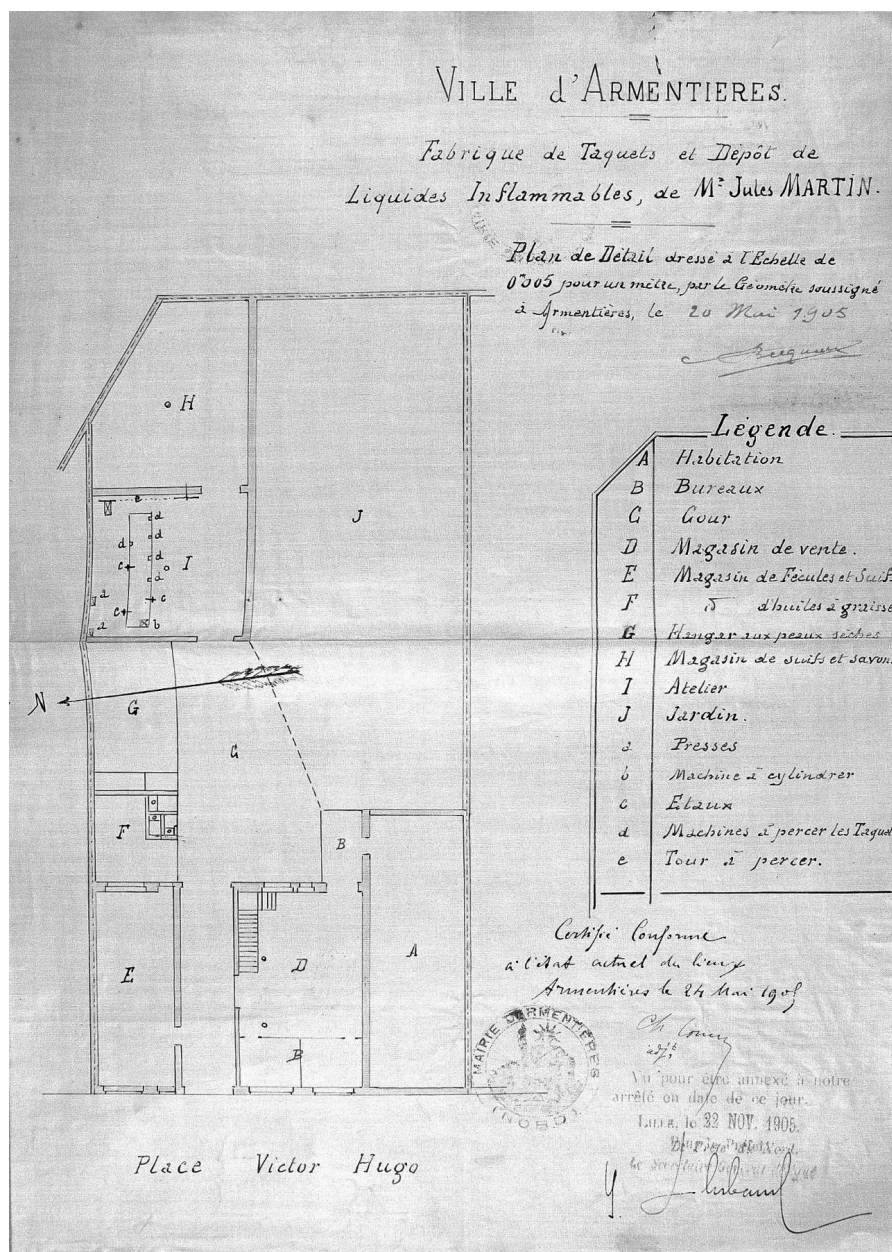 VILLE d'ARMENTIERES.
Fabrique de Taquets et Dépôt de
Liquides Inflammables, de Mr Jules MARTIN.
Plan de Détail dressé à l'Echelle de
0m005 pour un mètre, par le Géomètre soussigné
à Armentières, le 20 Mai 1905
Légende.
A Habitation
B Bureaux
C Cour
D Magasin de vente.
E Magasin de Fécules et Suif
F d° d'huiles à graisse
G Hangar aux peaux sèches
H Magasin de suifs et savon
I Atelier
J Jardin.
a Presses
b Machine à cylindrer
c Etaux
d Machines à percer les Taque
e Tour à percer.
H
e
d
d
d
d
d
c
I
c
a
c
a
b
J
N
G
C
F
B
E
D
A
B
Certifié Conforme
à l'état actuel du lieux
Armentières le 24 Mai 1905
adjt
MAIRIE D'ARMENTIERES
(NORD)
Vu pour être annexé à notre
arrêté en date de ce jour.
LILLE, le 22 NOV. 1905.
Place Victor Hugo